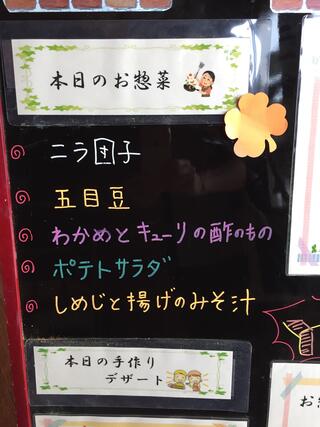 本日のお惣菜
ニラ団子
五目豆
わかめとキューリの酢のもの
ポテトサラダ
しめじと揚げのみそ汁
本日の手作り
デザート